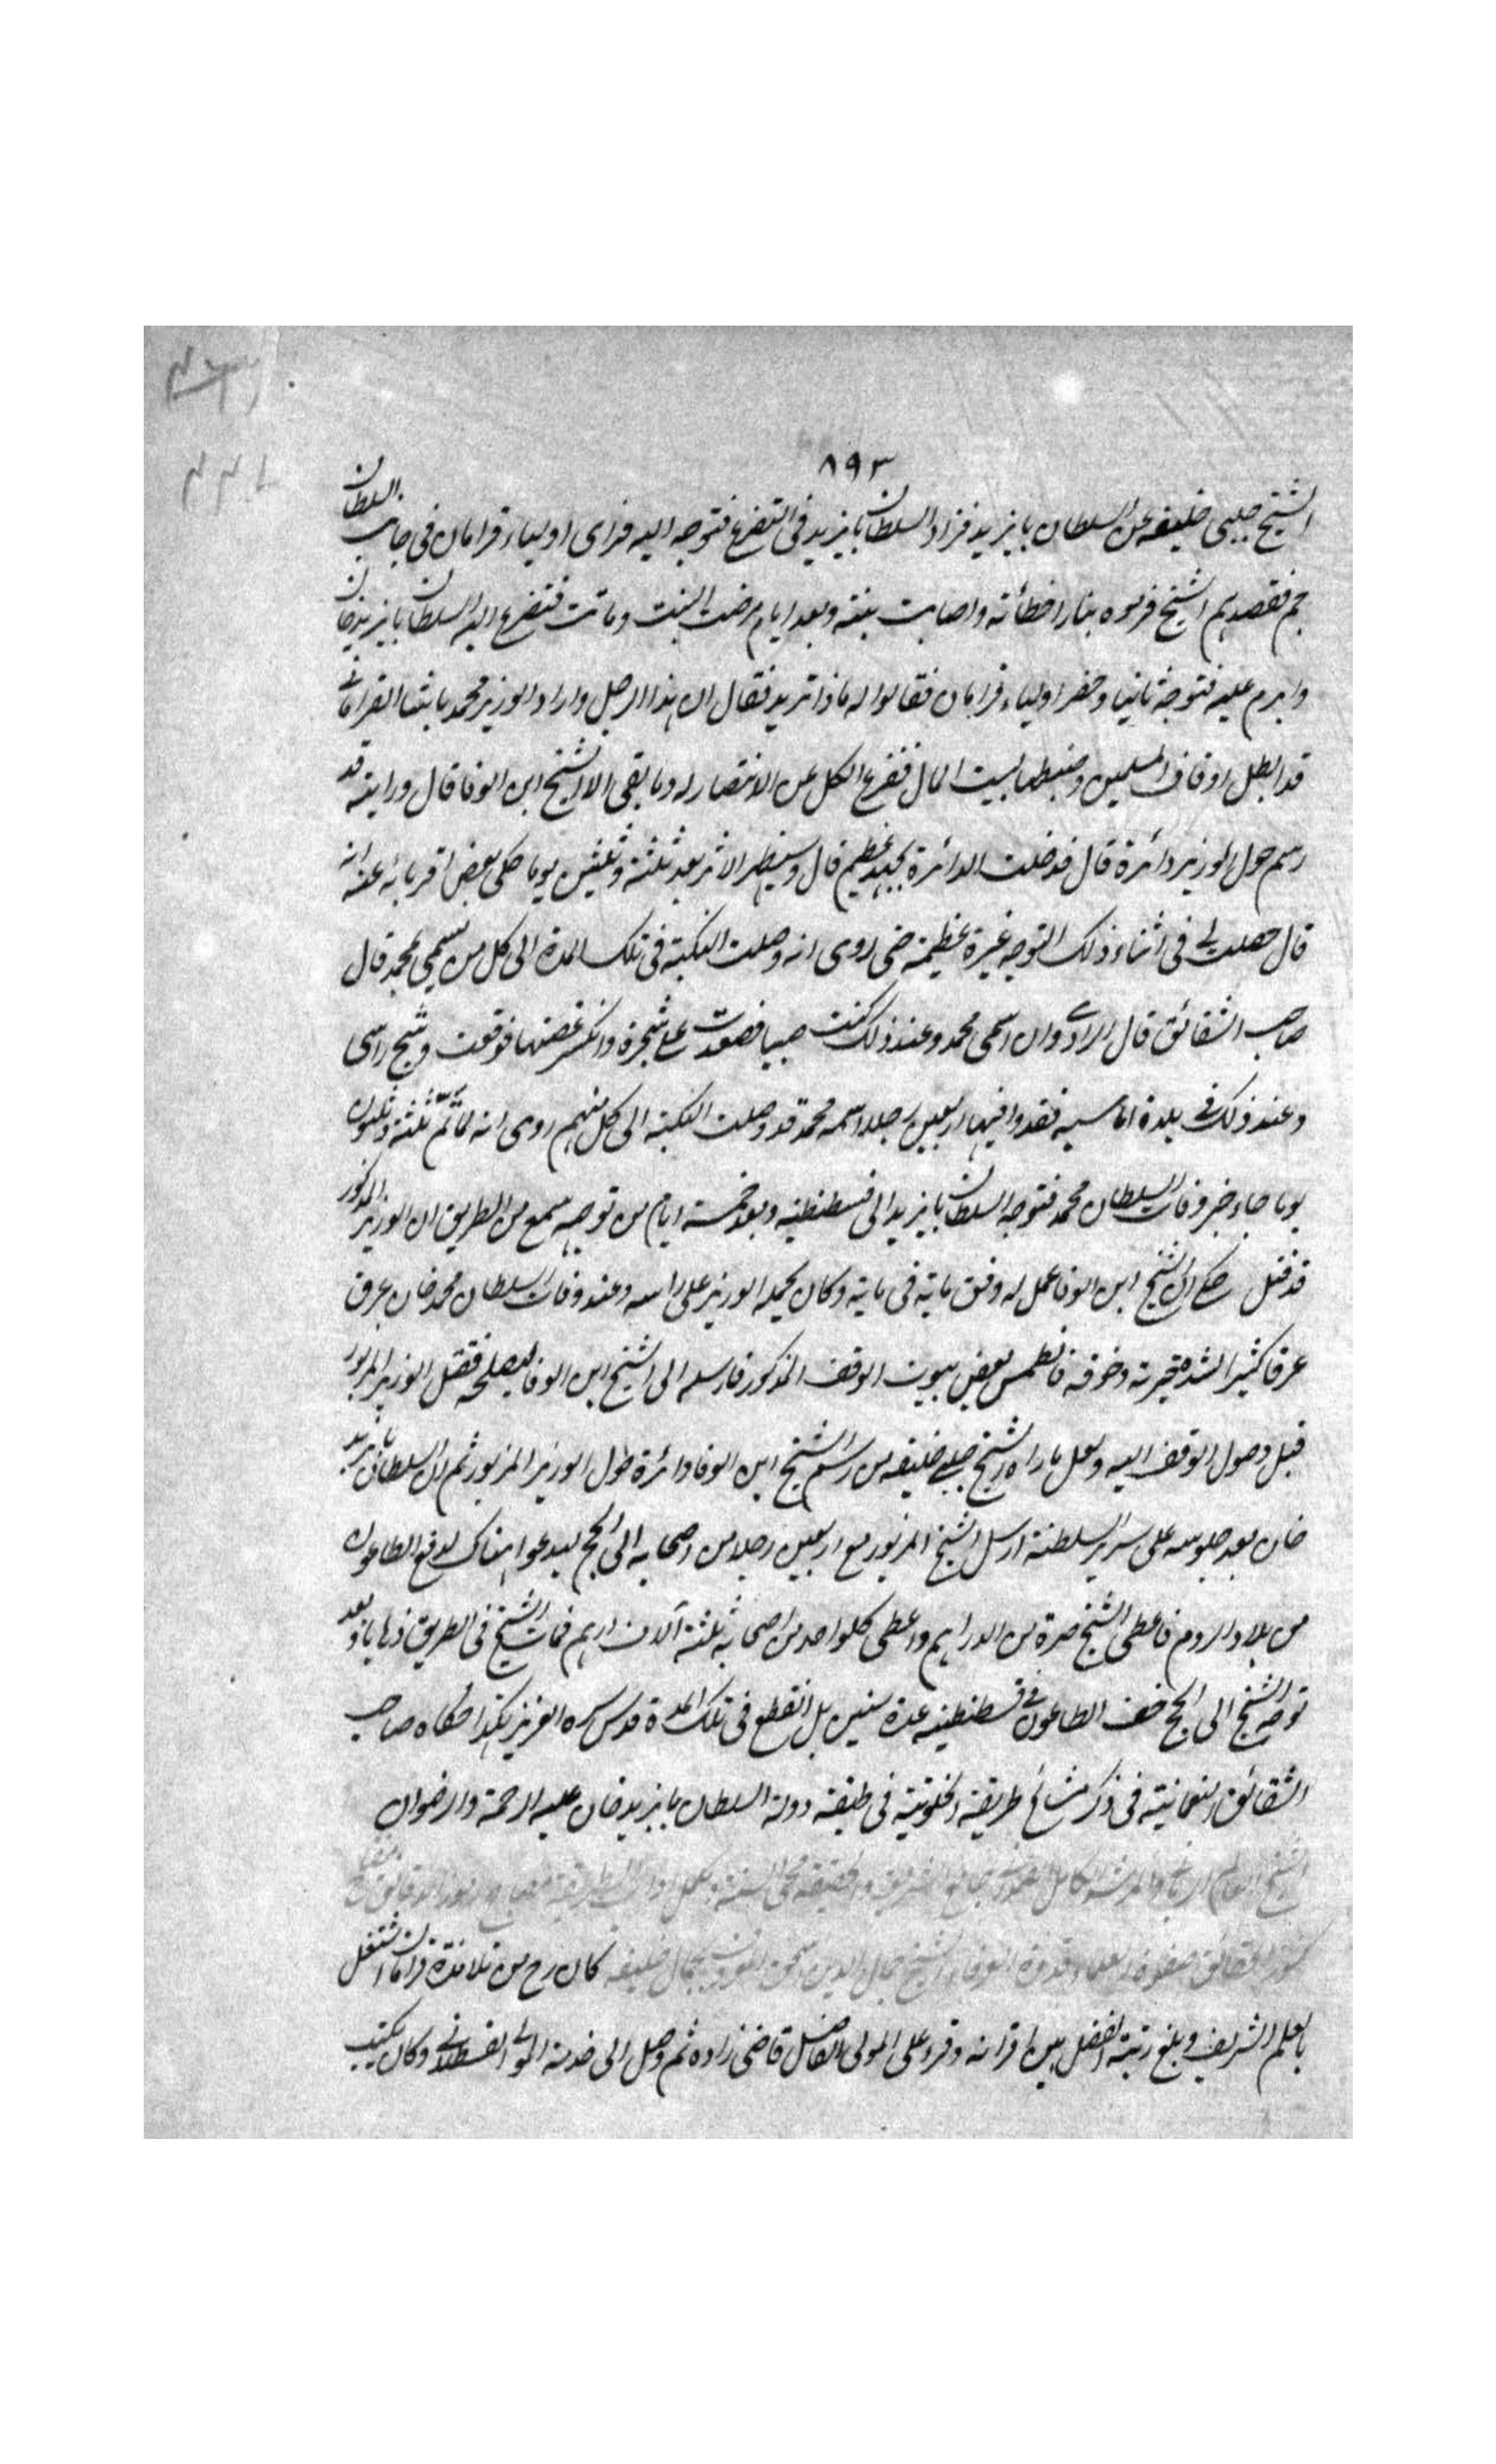 ٨٩٣
الشيخ جلبي خليفه عن السلطان بايزيد فزاد السلطان بايزيد في التضرع فتوجه اليه فراى اولياء قرامان في جانب السلطان
جم فقصدهم الشيخ فرموه بنار اخطأته واصابت بنته وبعد ايام مرضت البنت وماتت فتضرع اليه السلطان بايزيد خان
وابرم عليه فتوجه ثانيا وحضر اولياء قرامان فقالوا له ماذا تريد فقال ان هذا الرجل واراد الوزير محمد باشا القرامانى
قد ابطل اوقاف المسلمين وضبطها لبيت المال ففرغ الكل عن الانتصار له وما بقى الا الشيخ ابن الوفا قال ورايته قد
رسم حول الوزير دائرة قال فدخلت الدائرة بجهد عظيم قال وسيظهر الاثر بعد ثلثة وثلثين يوما حكى بعض اقربائه عنه انه
قال حصلت لى في اثناء ذلك التوجه غيرة عظيمة حتى روى انه وصلت النكبة في تلك المدة الى كل من يسمى بمحمد قال
صاحب الشقائق قال الراوى وان اسمى محمد وعند ذلك كنت صبيا فصعدت على شجرة وانكسر غصنها فوقعت وشج راسى
وعند ذلك في بلدة اماسيه فقدوا فيها اربعين رجلا اسمه محمد قد وصلت النكبة الى كل منهم روى انه لما تم ثلثة وثلثون
يوما جاء خبر وفات السلطان محمد فتوجه السلطان بايزيد الى قسطنطنيه وبعد خمسة ايام من توجهه سمع من الطريق ان الوزير المذكور
قد قتل حكى ان الشيخ ابن الوفا عمل له وفق ماية في ماية وكان يحمله الوزير على راسه وعند وفات السلطان محمد خان عرق
عرقا كثيرا لشدة حيرته وخوفه فانطمس بعض بيوت الوفق المذكور فارسله الى الشيخ ابن الوفا ليصلحه فقتل الوزير المزبور
قبل وصول الوفق اليه ولعل ما راه الشيخ جلبى خليفه من رسم الشيخ ابن الوفا دائرة حول الوزير المزبور ثم ان السلطان بايزيد
خان بعد جلوسه على سرير السلطنة ارسل الشيخ المزبور مع اربعين رجلا من اصحابه الى الحج ليدعوا هناك لدفع الطاعون
من بلاد الروم فاعطى الشيخ صرة من الدراهم واعطى كلواحد من اصحابه ثلثة آلاف درهم فمات الشيخ في الطريق ذهابا وبعد
توجه الشيخ الى الحج خف الطاعون في قسطنطنيه عدة سنين بل انقطع في تلك المدة قدس سره العزيز هكذا حكاه صاحب
الشقائق النعمانية في ذكر مشايخ طريقة الخلوتية في طبقة دولة السلطان بايزيد خان عليه الرحمة والرضوان
الشيخ العالم والمرشد الكامل جامع الشريعة والحقيقة محى السنة
كنوز الحقائق صفوة العلماء وقدوة العرفاء الشيخ جمال الدين اسحق المعروف بجمال خليفه كان رح من تلامذة قرامان اشتغل
بالعلم الشريف وبلغ رتبة الفضل بين اقرانه وقرء على المولى الفاضل قاضى زاده ثم وصل الى خدمة المولى القسطلانى وكان يكتب